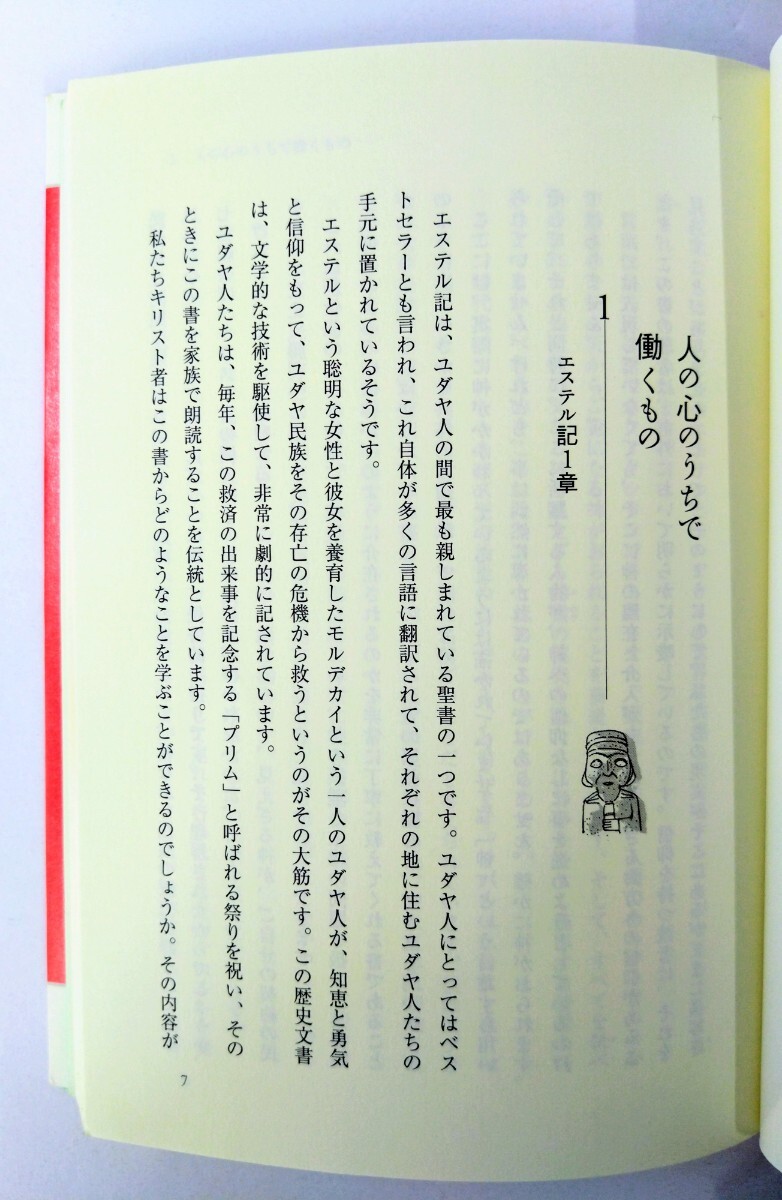 人の心のうちで
働くもの
1
エステル記1章
エステル記は、ユダヤ人の間で最も親しまれている聖書の一つです。ユダヤ人にとってはベス
トセラーとも言われ、これ自体が多くの言語に翻訳されて、それぞれの地に住むユダヤ人たちの
手元に置かれているそうです。
エステルという聡明な女性と彼女を養育したモルデカイという一人のユダヤ人が、知恵と勇気
と信仰をもって、ユダヤ民族をその存亡の危機から救うというのがその大筋です。この歴史文書
は、文学的な技術を駆使して、非常に劇的に記されています。
ユダヤ人たちは、毎年、この救済の出来事を記念する「プリム」と呼ばれる祭りを祝い、その
ときにこの書を家族で朗読することを伝統としています。
私たちキリスト者はこの書からどのようなことを学ぶことができるのでしょうか。その内容が
7